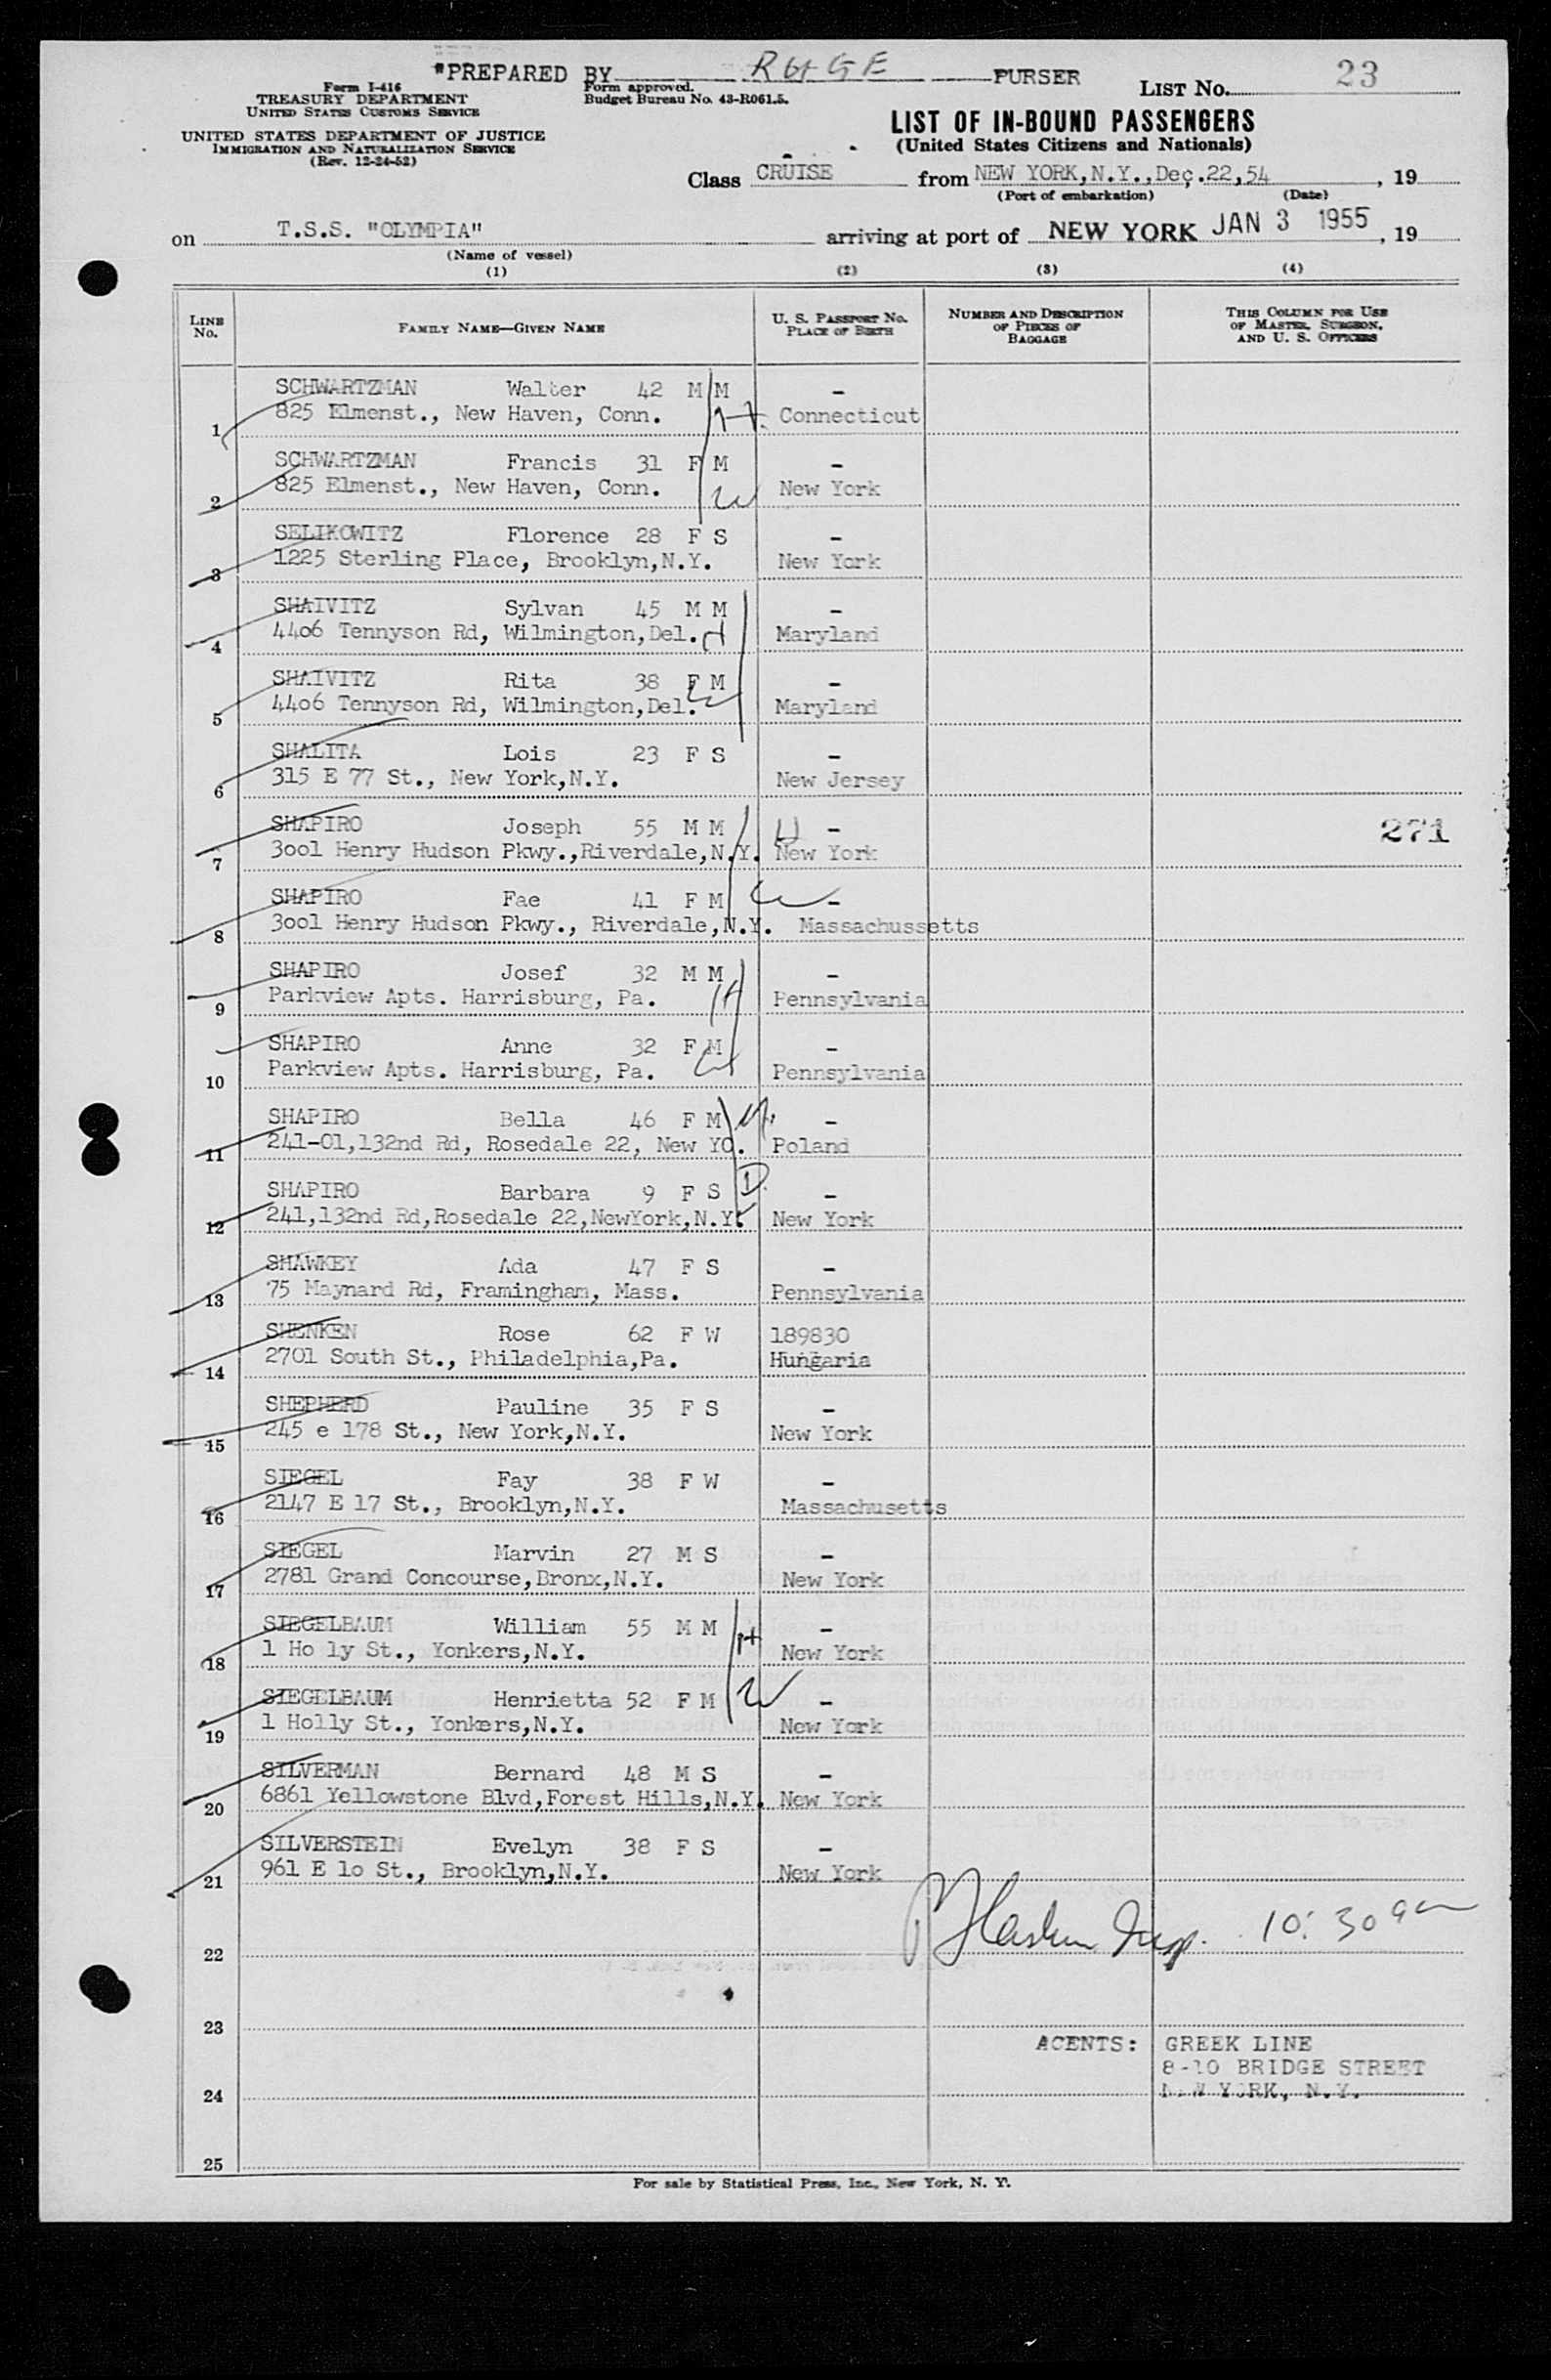 "PREPARED BY RUGE PURSER
Form I-416
TREASURY DEPARTMENT
UNITED STATES CUSTOMS SERVICE
UNITED STATES DEPARTMENT OF JUSTICE
IMMIGRATION AND NATURALIZATION SERVICE
(Rev. 12-24-52)
Form approved.
Budget Bureau No. 43-R061.5.
LIST No. 23
LIST OF IN-BOUND PASSENGERS
(United States Citizens and Nationals)
Class CRUISE from NEW YORK,N.Y.,Dec.22,54, 19
(Port of embarkation) (Date)
on T.S.S. "OLYMPIA" arriving at port of NEW YORK JAN 3 1955, 19
(Name of vessel)
(1) (2) (3) (4)
LINE No. FAMILY NAME—GIVEN NAME U. S. PASSPORT No. PLACE OF BIRTH NUMBER AND DESCRIPTION OF PIECES OF BAGGAGE THIS COLUMN FOR USE OF MASTER, SURGEON, AND U. S. OFFICERS
SCHWARTZMAN Walter 42 M M -
1 825 Elmenst., New Haven, Conn. H. Connecticut
SCHWARTZMAN Francis 31 F M -
2 825 Elmenst., New Haven, Conn. W New York
SELIKOWITZ Florence 28 F S -
3 1225 Sterling Place, Brooklyn,N.Y. New York
SHAIVITZ Sylvan 45 M M -
4 4406 Tennyson Rd, Wilmington,Del. H Maryland
SHAIVITZ Rita 38 F M -
5 4406 Tennyson Rd, Wilmington,Del. W Maryland
SHALITA Lois 23 F S -
6 315 E 77 St., New York,N.Y. New Jersey
SHAPIRO Joseph 55 M M H - 271
7 3001 Henry Hudson Pkwy.,Riverdale,N.Y. New York
SHAPIRO Fae 41 F M W -
8 3001 Henry Hudson Pkwy., Riverdale,N.Y. Massachussetts
SHAPIRO Josef 32 M M -
9 Parkview Apts. Harrisburg, Pa. H Pennsylvania
SHAPIRO Anne 32 F M -
10 Parkview Apts. Harrisburg, Pa. W Pennsylvania
SHAPIRO Bella 46 F M M. -
11 241-01,132nd Rd, Rosedale 22, New YO. Poland
SHAPIRO Barbara 9 F S D. -
12 241,132nd Rd,Rosedale 22,NewYork,N.Y. New York
SHAWKEY Ada 47 F S -
13 75 Maynard Rd, Framingham, Mass. Pennsylvania
SHENKEN Rose 62 F W 189830
14 2701 South St., Philadelphia,Pa. Hungaria
SHEPHERD Pauline 35 F S -
15 245 e 178 St., New York,N.Y. New York
SIEGEL Fay 38 F W -
16 2147 E 17 St., Brooklyn,N.Y. Massachusetts
SIEGEL Marvin 27 M S -
17 2781 Grand Concourse,Bronx,N.Y. New York
SIEGELBAUM William 55 M M H -
18 1 Ho ly St., Yonkers,N.Y. New York
SIEGELBAUM Henrietta 52 F M W -
19 1 Holly St., Yonkers,N.Y. New York
SILVERMAN Bernard 48 M S -
20 6861 Yellowstone Blvd,Forest Hills,N.Y. New York
SILVERSTEIN Evelyn 38 F S -
21 961 E 10 St., Brooklyn,N.Y. New York
Insp. 10:30 am
22
23
AGENTS: GREEK LINE
8-10 BRIDGE STREET
24 NEW YORK, N.Y.
25
For sale by Statistical Press, Inc., New York, N. Y.